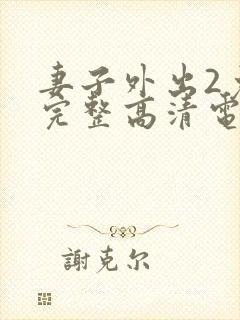 妻子外出2
完整高清電
謝克尔